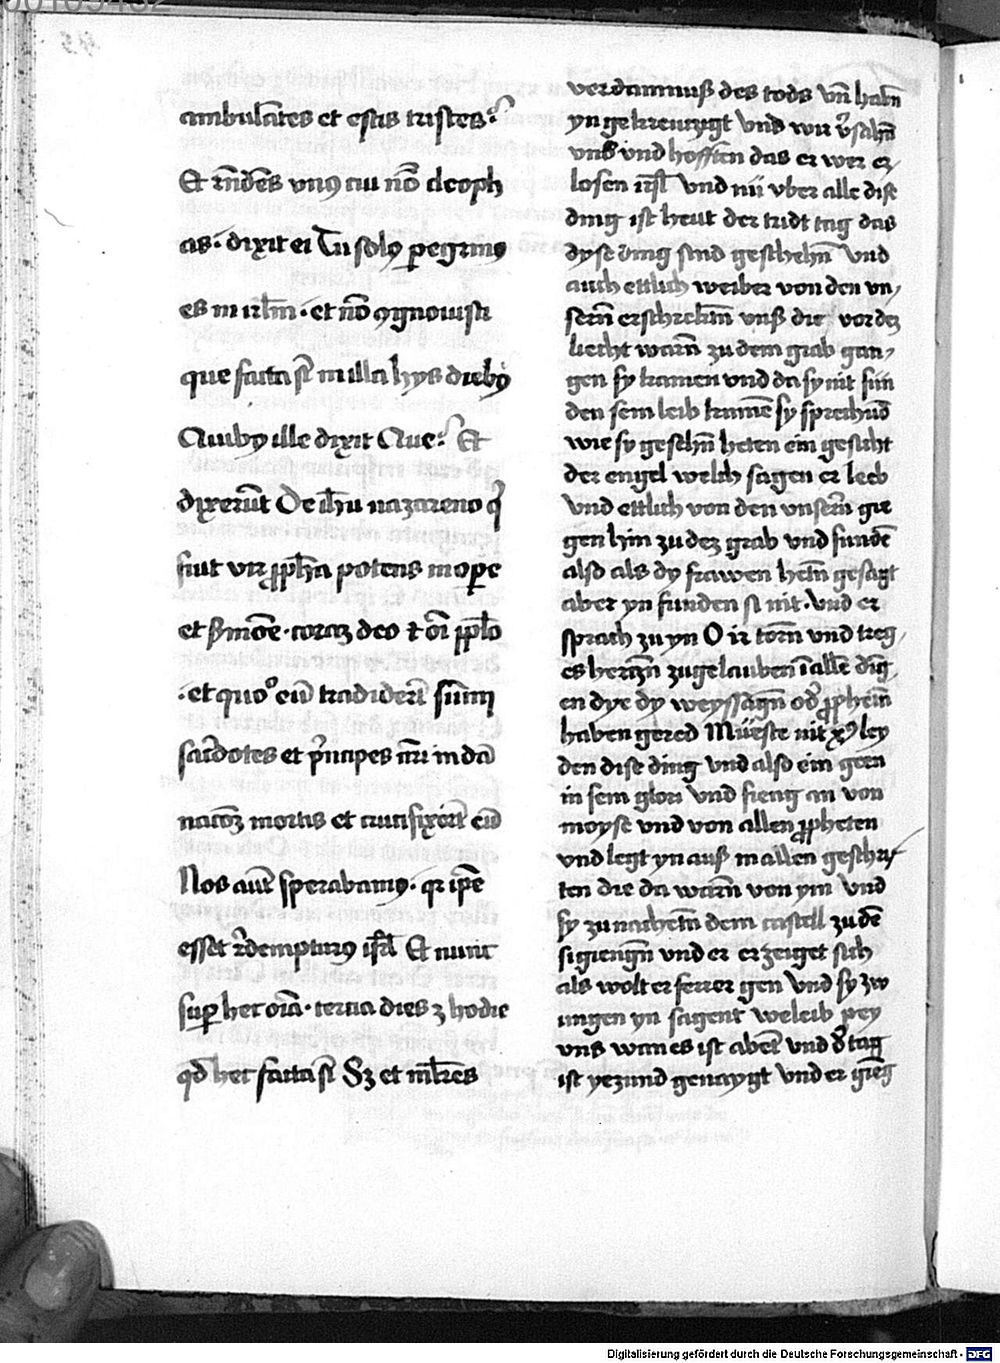 ambulātes et estis tristes·
Et r̄ndēs vnꝯ cui nō cleoph
as· dixit ei Tu solꝯ ꝑegrinꝯ
es in irl̄m· et nō ꝯgnouisti
que facta sī in illa hys diebꝯ
Quibꝯ ille dixit Que· Et
dixerūt De ih̄u nazareno q̄
fuit vir ꝓph̄a potens in oꝑe
et s̄mōe· coraꝫ deo et oī ppl̄o
·et quoº eū tradiderī sūmi
sac̄dotes et p̄ncipes nr̄i in dā
nacōꝫ mortis et crucifixerī eū
Nos aūt sperabamꝯ· qr ip̄e
esset r̄dempturꝯ isr̄l Et nunc
suꝑ hec oīa· tercia dies ꝫ hodie
qd̄ hec facta sī Sꝫ et ml̄ies
verdamnuß des tods vn̄ habn̄
yn gekreuczygt vnd wir v̄sahn̄
vnß vnd hoffen das er wer er
losen isr̄l vnd nü vber alle diſe
ding ist heut der tridt tag das
dyse ding sind geschehn̄ vnd
auch ettlich weiber von den vn,
sern̄ erschrekn̄ vnß die vor deꝫ
liecht warn̄ zu dem grab gan,
gen sy kamen vnd da sy nit fun
den sein leib kamē sy sprechūd
wie sy gesehn̄ heten ein gesicht
der engel welch sagen er leeb
vnd ettlich von den vnserm̄ gie
gen hin zu deꝫ grab vnd fundē
also als dy frawen hetn̄ gesagt
aber yn funden si nit· vnd er
sprach zu yn O ir torn̄ vnd treg,
es herczn̄ zugelauben ī allē ding
en dye dy weyssagn̄ od̄ ꝓphetn̄
haben gered Müeste nit xp̄ꝯ ley
den dise ding vnd also ein geen
in sein glori vnd fieng an von
moyse vnd von allen ꝓpheten
vnd legt yn auß in allen geschrf
ten die da warn̄ von ym vnd
sy zu nachetn̄ dem castell zu dē
si giengn̄ vnd er erzeiget sich
als wolt er ferrer gen vnd sy zw
ungen yn sagent weleib pey
vns wan es ist abent vnd d̄ tag
ist yeczund genaygt vnd er gieg
Digitalisierung gefördert durch die Deutsche Forschungsgemeinschaft - DFG